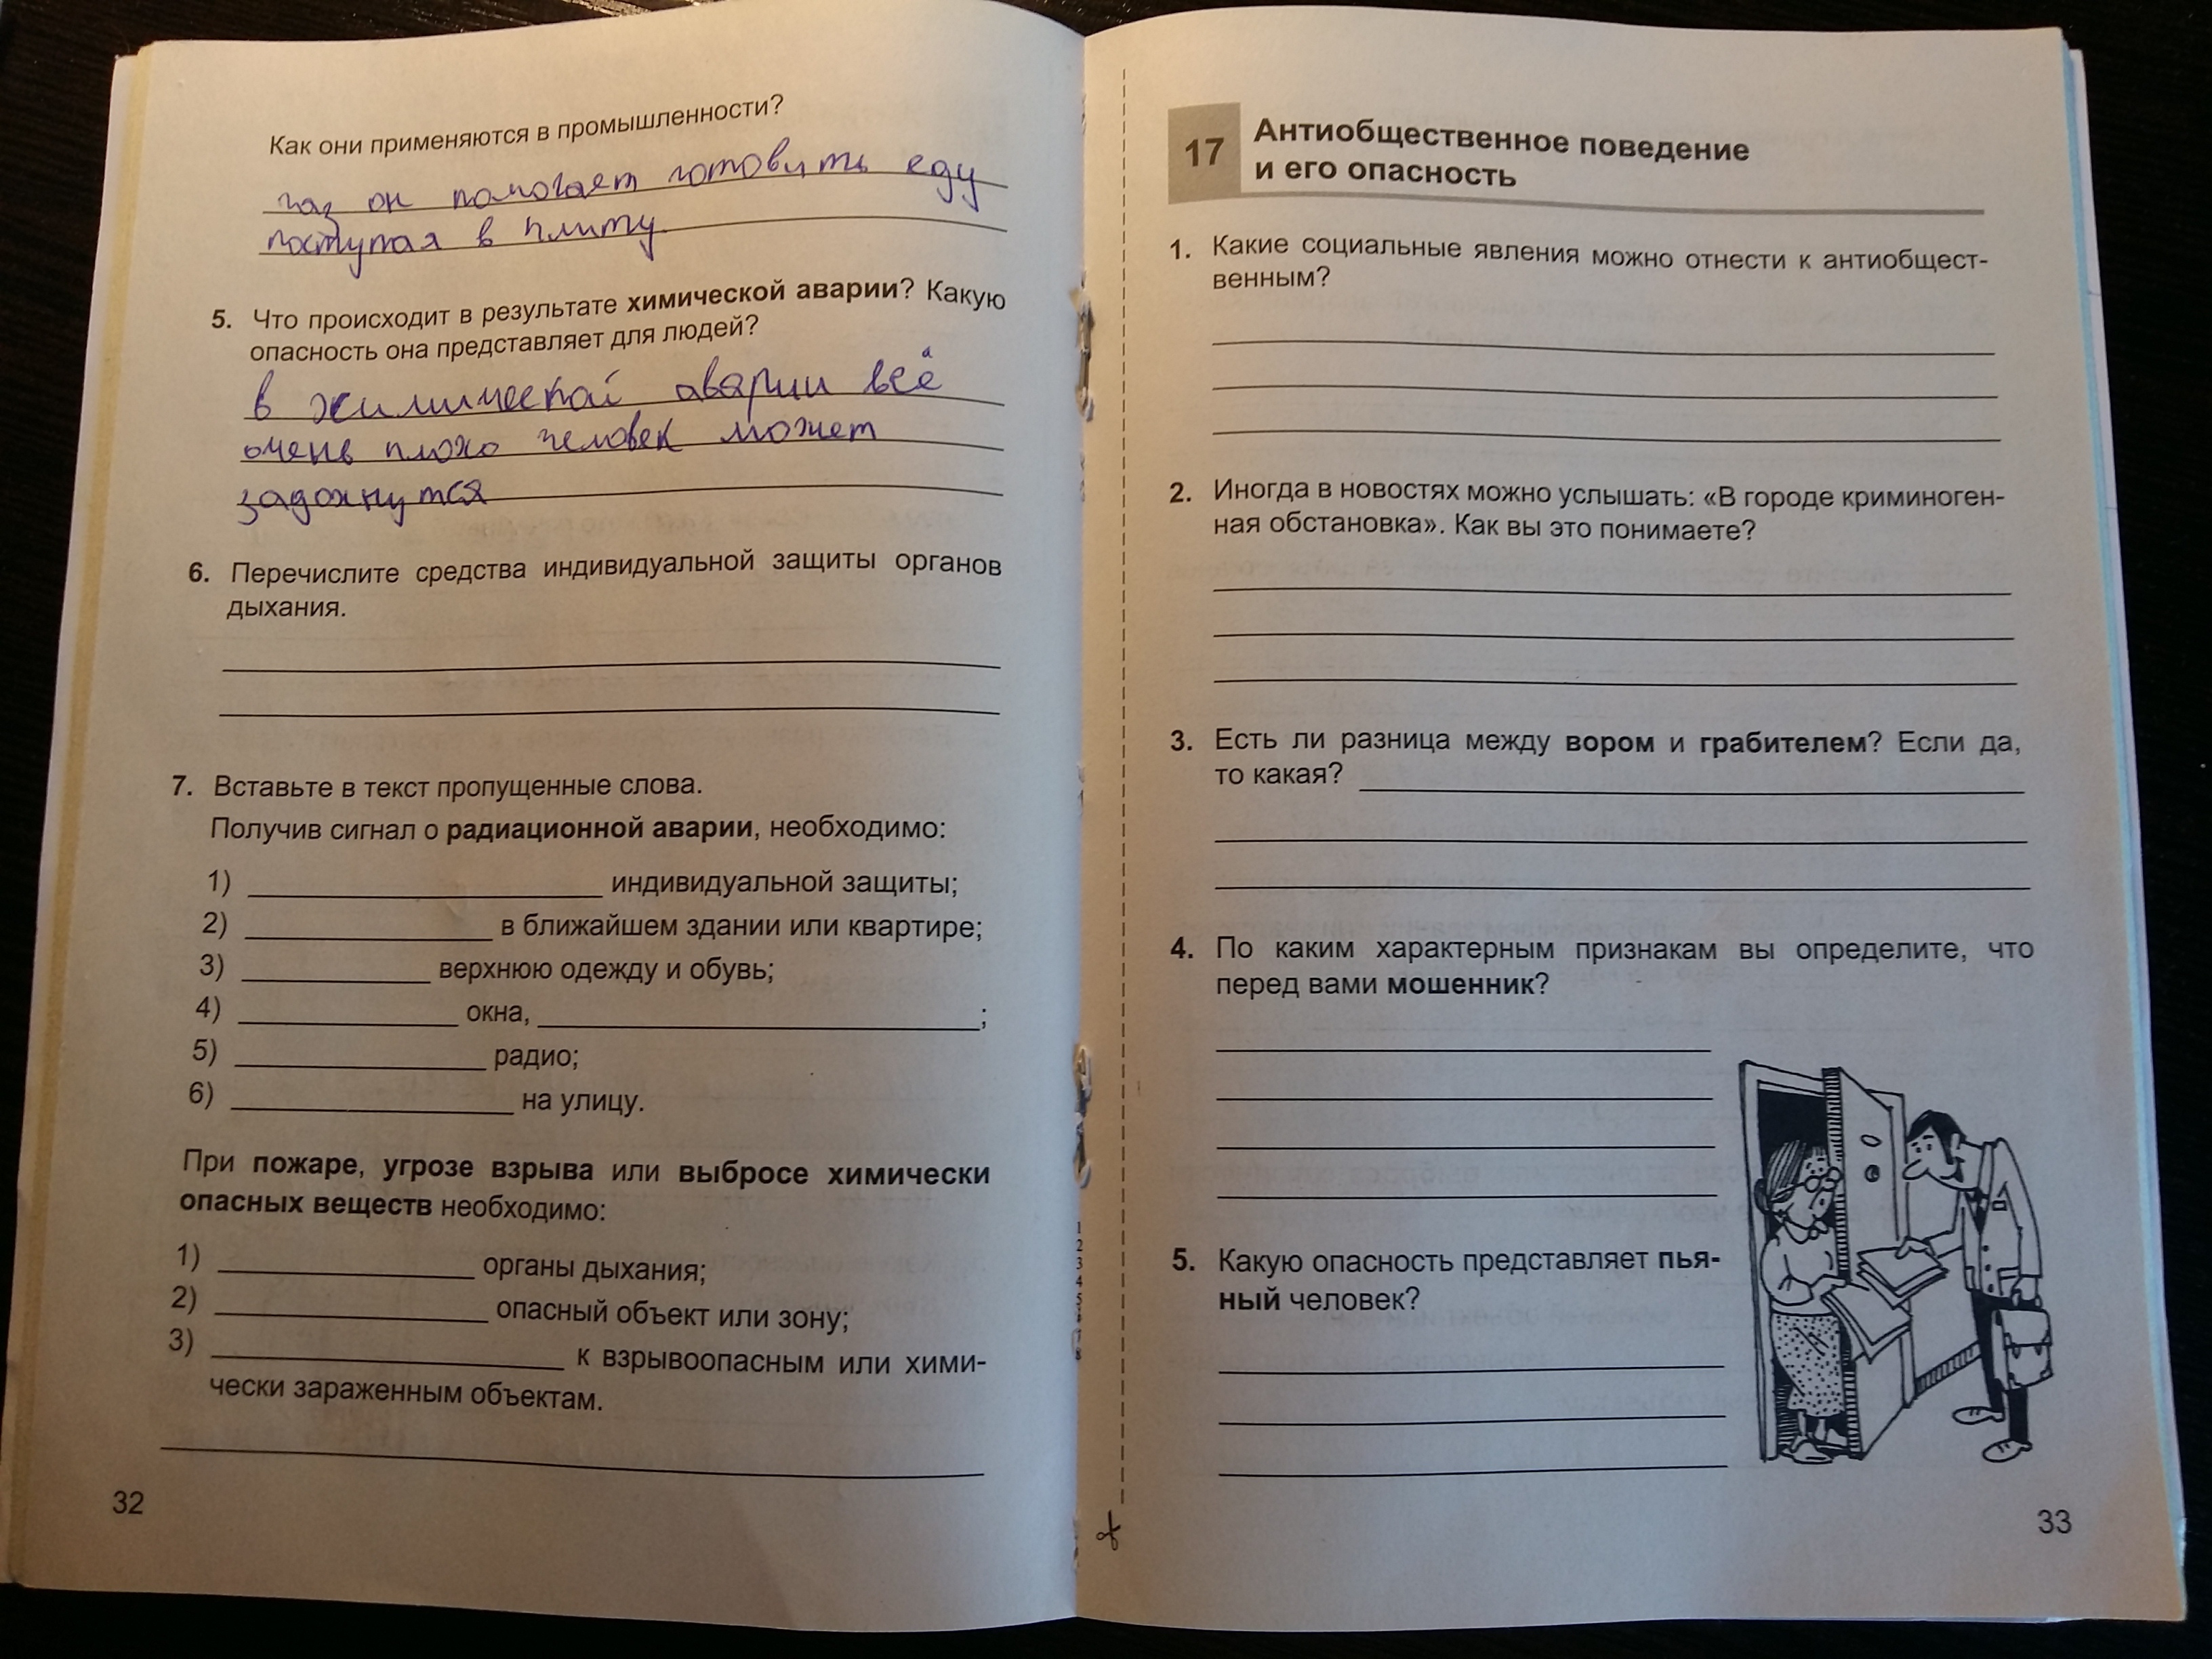 Как они применяются в промышленности?
газ он помогает готовить еду
поступая в плиту
5. Что происходит в результате химической аварии? Какую
опасность она представляет для людей?
в химической аварии всё
очень плохо человек может
задохнутся
6. Перечислите средства индивидуальной защиты органов
дыхания.
7. Вставьте в текст пропущенные слова.
Получив сигнал о радиационной аварии, необходимо:
1) ____ индивидуальной защиты;
2) ____ в ближайшем здании или квартире;
3) ____ верхнюю одежду и обувь;
4) ____ окна, ____;
5) ____ радио;
6) ____ на улицу.
При пожаре, угрозе взрыва или выбросе химически
опасных веществ необходимо:
1) ____ органы дыхания;
2) ____ опасный объект или зону;
3) ____ к взрывоопасным или хими-
чески зараженным объектам.
32
17 Антиобщественное поведение
и его опасность
1. Какие социальные явления можно отнести к антиобщест-
венным?
2. Иногда в новостях можно услышать: «В городе криминоген-
ная обстановка». Как вы это понимаете?
3. Есть ли разница между вором и грабителем? Если да,
то какая?
4. По каким характерным признакам вы определите, что
перед вами мошенник?
5. Какую опасность представляет пья-
ный человек?
33